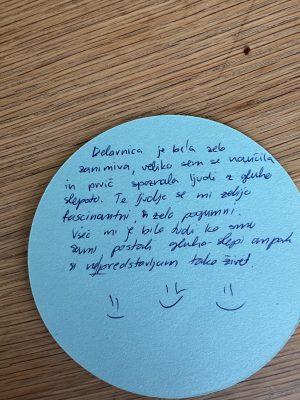 Delavnica je bila zelo
zanimiva, veliko sem se naučila
in prvič spoznala ljudi z gluho
slepoto. Te ljudje se mi zdijo
fascinantni, zelo pogumni.
Všeč mi je bilo tudi ko smo
sami postali gluho-slepi ampak
si predstavljam tako živet